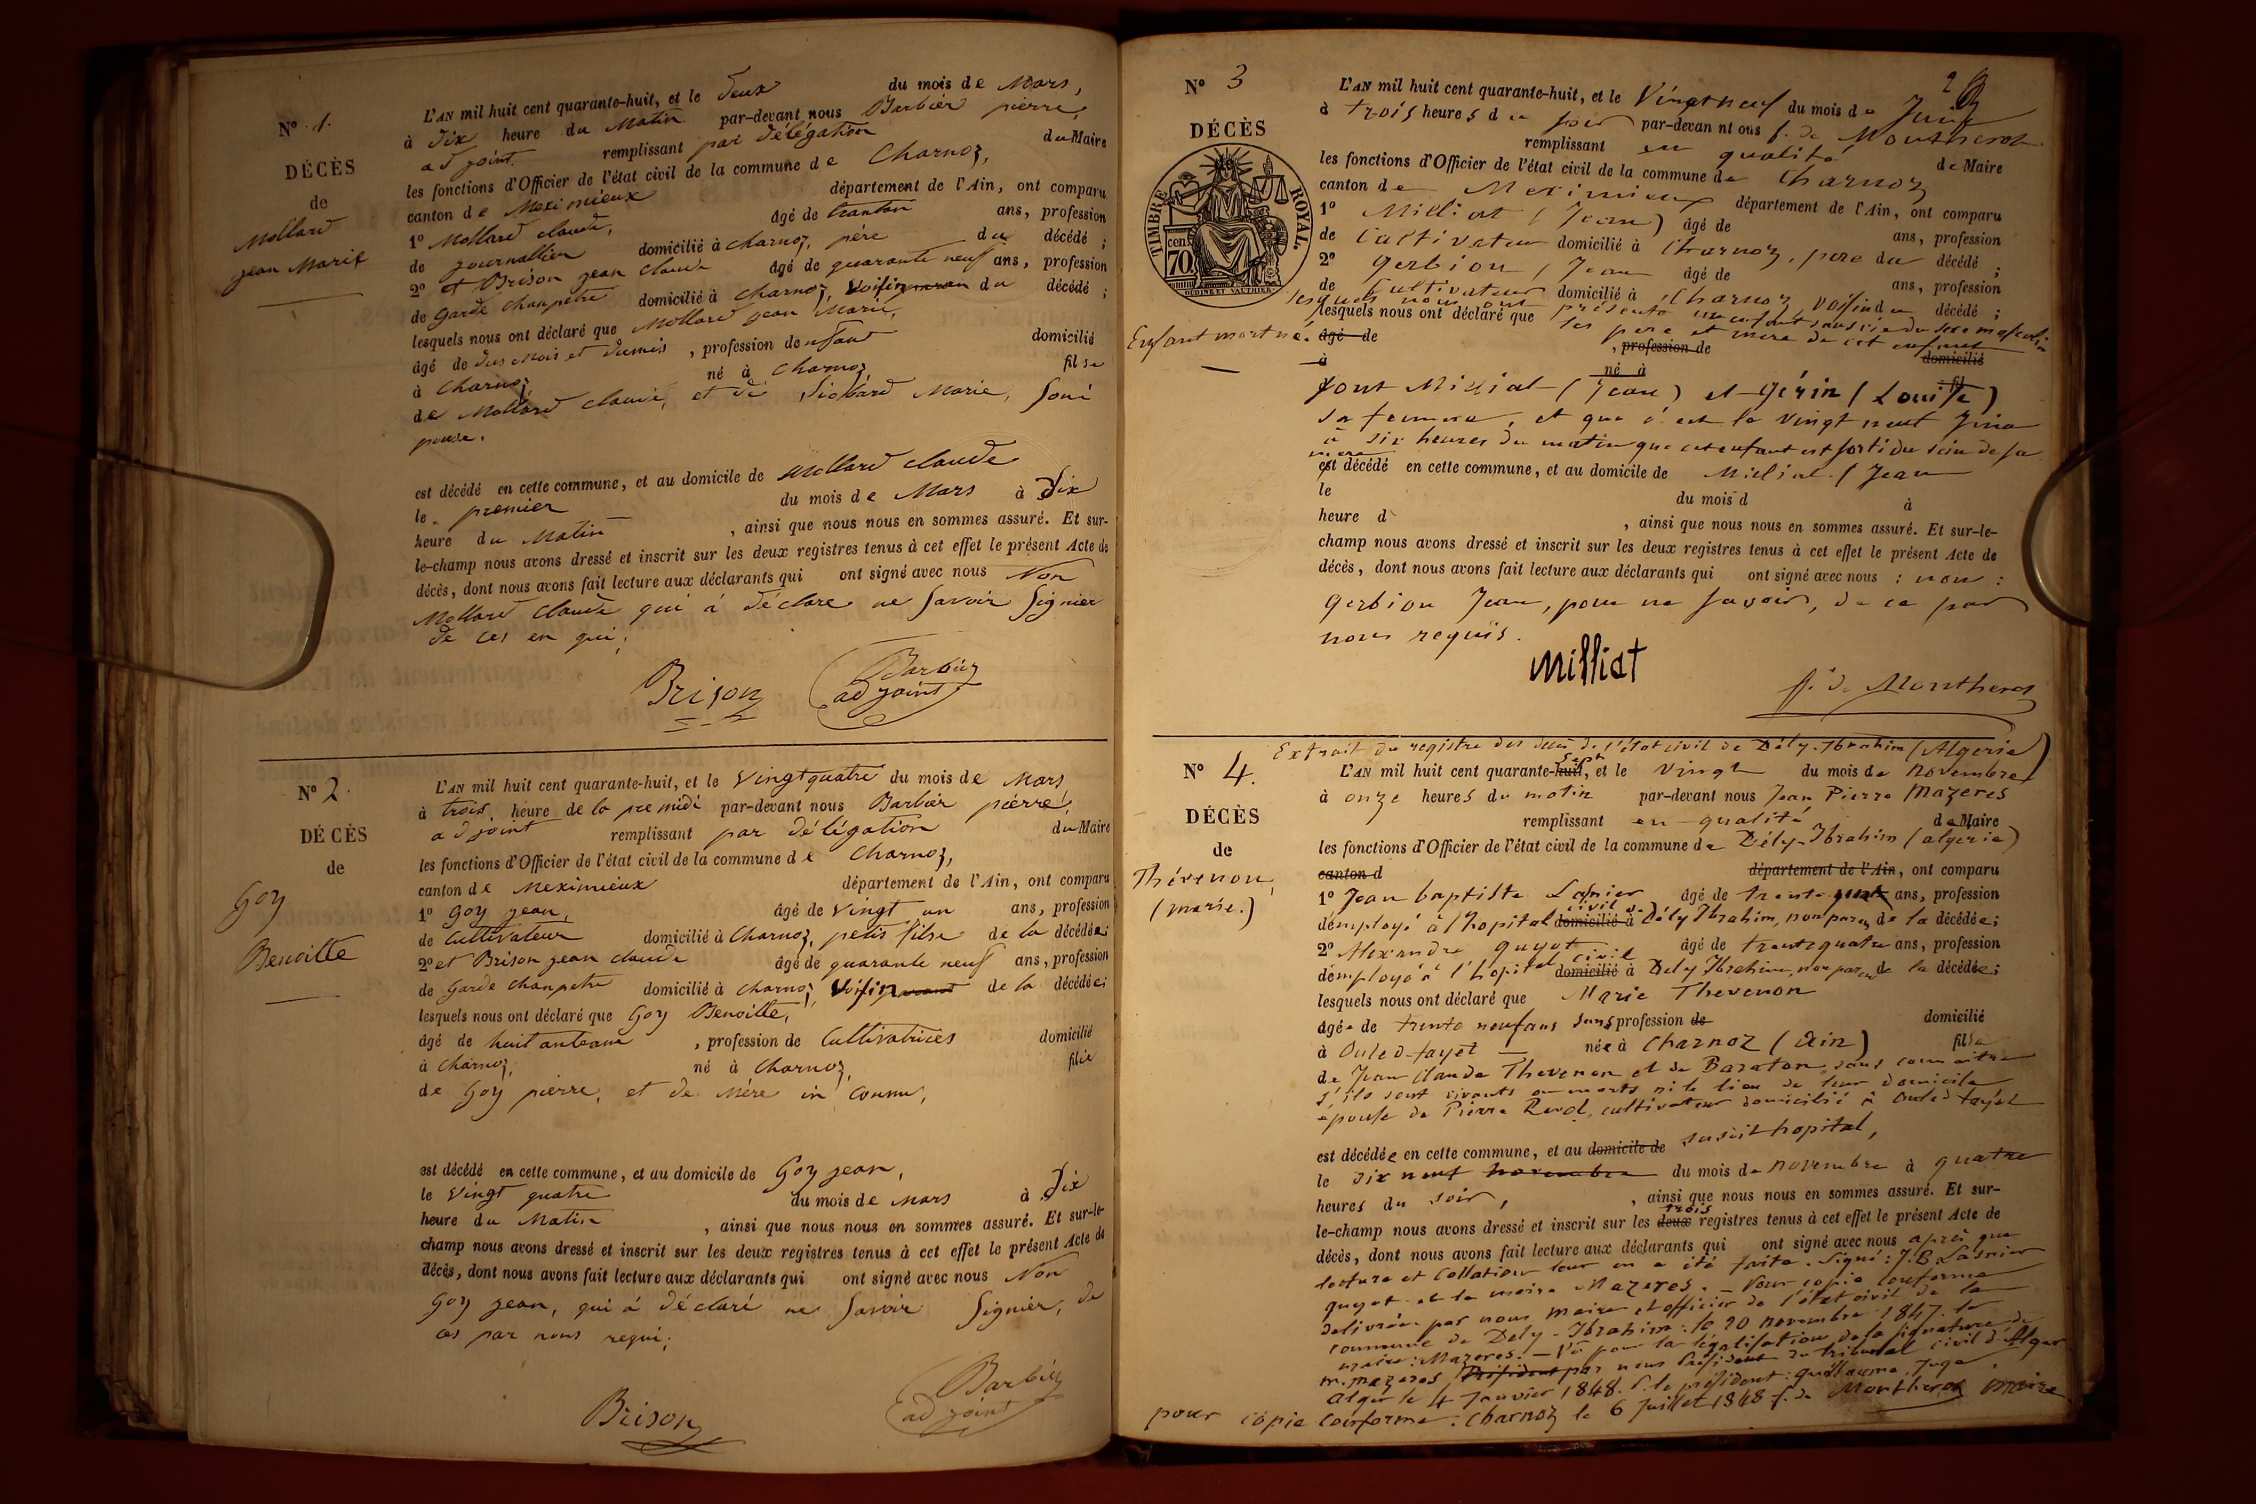 N° 1.
DÉCÈS
de
Mollard
jean Marie
L'AN mil huit cent quarante-huit, et le deux du mois de Mars,
à dix heure du Matin par-devant nous Barbier pierre,
adjoint remplissant par délégation du Maire
les fonctions d'Officier de l'état civil de la commune de Charnoz,
canton de Meximieux département de l'Ain, ont comparu
1° Mollard claude, âgé de ans, profession
de journallier domicilié à charnoz, père du décédé ;
2° et Brison jean claude âgé de quarante neuf ans, profession
de garde chanpetre domicilié à charnoz, voisin du décédé ;
lesquels nous ont déclaré que Mollard jean Marie,
âgé de mois et , profession denfant domicilié
à Charnoz, né à Charnoz, filse
de Mollard claude, et de Marie, Soné
pouse.
est décédé en cette commune, et au domicile de Mollard claude
le premier du mois de Mars à dix
heure du Matin , ainsi que nous nous en sommes assuré. Et sur-
le-champ nous avons dressé et inscrit sur les deux registres tenus à cet effet le présent Acte de
décès, dont nous avons fait lecture aux déclarants qui ont signé avec nous Non
Mollard claude qui á déclare ne Savoir Signier
de ces en qui;
Brison Barbier
adjoint
N° 2
DÉCÈS
de
Goy
Benoitte
L'AN mil huit cent quarante-huit, et le vingtquatre du mois de Mars
à trois heure de la pre midi par-devant nous Barbier pierre,
adjoint remplissant par délégation du Maire
les fonctions d'Officier de l'état civil de la commune de Charnoz,
canton de Meximieux département de l'Ain, ont comparu
1° Goy jean, âgé de vingt un ans, profession
de Cultivateur domicilié à Charnoz, petis filse de la décédée ;
2° et Brison jean claude âgé de quarante neuf ans, profession
de garde chanpetre domicilié à charnoz, voisin de la décédée ;
lesquels nous ont déclaré que Goy Benoitte,
âgé de huitanteanne , profession de Cultivatrices domicilié
à Charnoz, né à Charnoz, filie
de Goy pierre, et de Mère in connu,
est décédé en cette commune, et au domicile de Goy jean,
le vingt quatre du mois de Mars à dix
heure du Matin , ainsi que nous nous en sommes assuré. Et sur-le-
champ nous avons dressé et inscrit sur les deux registres tenus à cet effet le présent Acte de
décès, dont nous avons fait lecture aux déclarants qui ont signé avec nous Non
Goy jean, qui á déclaré ne Savoir Signier, de
ces par nous requi;
Brison Barbier
adjoint
2
N° 3
DÉCÈS
TIMBRE ROYAL.
cen. 70.
OUDINE ET VAUTHIER
Enfant mort né.
L'AN mil huit cent quarante-huit, et le Vingt neuf du mois de Juin
à trois heures du soir par-devan nt ous f. de Montherot
remplissant en qualité de Maire
les fonctions d'Officier de l'état civil de la commune de Charnoz
canton de Meximieux département de l'Ain, ont comparu
1° Milliat (Jean) âgé de ans, profession
de Cultivateur domicilié à Charnoz, pere du décédé ;
2° Gerbion (Jean âgé de ans, profession
de Cultivateur domicilié à Charnoz voisin du décédé ;
lesquels nous ont présenté un enfant sans vie du sexe masculin
lesquels nous ont déclaré que les pere et mere de cet enfant
âgé de , profession de domicilié
à né à fil
sont Milliat (Jean) et Gérin (Louise)
sa femme, et que c'est le vingt neuf Juin
à six heures du matin que cet enfant est sorti du sein de sa
mere
est décédé en cette commune, et au domicile de Milliat (Jean
le du mois d à
heure d , ainsi que nous nous en sommes assuré. Et sur-le-
champ nous avons dressé et inscrit sur les deux registres tenus à cet effet le présent Acte de
décès, dont nous avons fait lecture aux déclarants qui ont signé avec nous : non :
Gerbion Jean, pour ne savoir, de ce par
nous requis.
Milliat
f. de Montherot
Extrait du registre des décès de l'état civil de Dély-Ibrahim (Algerie)
N° 4.
DÉCÈS
de
Thévenon,
(marie.)
sept
L'AN mil huit cent quarante-huit, et le vingt du mois de novembre
à onze heures du matin par-devant nous Jean Pierre Mazeres
remplissant en qualité de Maire
les fonctions d'Officier de l'état civil de la commune de Dély-Ibrahim (algerie)
canton d département de l'Ain, ont comparu
1° Jean baptiste Lasnier âgé de trente ans, profession
civil de
démployé à l'hopital domicilié à Dély Ibrahim, non paren de la décédée ;
2° Alexandre guyot âgé de trentequatre ans, profession
civil
démployé à l'hopital domicilié à Dely Ibrahim, non paren de la décédée ;
lesquels nous ont déclaré que Marie Thevenon
âgée de trente neuf ans sans profession de domicilié
à Ouled-fayet née à Charnoz (Ain) fille
de Jean Claude Thevenon et de Baraton, sans connaitre
s'ils sont vivants ou morts ni le lieu de leur domicile
epouse de Pierre Revol, cultivateur domicilié à Ouled fayet
est décédée en cette commune, et au domicile de susdit hopital,
le dix neuf novembre du mois de novembre à quatre
heures du soir, , ainsi que nous nous en sommes assuré. Et sur-
trois
le-champ nous avons dressé et inscrit sur les deux registres tenus à cet effet le présent Acte de
décès, dont nous avons fait lecture aux déclarants qui ont signé avec nous après que
lecture et collation leur en a été faite. Signé : J. B. Lasnier
guyot et le maire Mazeres. — Pour copie conforme
delivrée par nous maire et officier de l'état civil de la
commune de Dely-Ibrahim : le 20 novembre 1847. le
maire : Mazeres. — Vu pour la légalisation de la signature de
m. mazeres Président par nous Président du tribunal civil d'Alger
Alger le 4 Janvier 1848. S. le président : guillaume Juge
pour copie conforme : Charnoz le 6 Juillet 1848 f. de Montherot maire